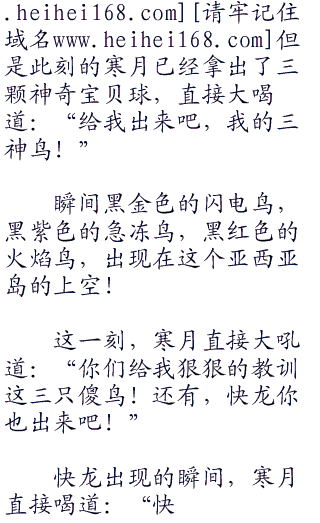 .heihei168.com][请牢记住
域名www.heihei168.com]但
是此刻的寒月已经拿出了三
颗神奇宝贝球，直接大喝
道：“给我出来吧，我的三
神鸟！”
瞬间黑金色的闪电鸟，
黑紫色的急冻鸟，黑红色的
火焰鸟，出现在这个亚西亚
岛的上空！
这一刻，寒月直接大吼
道：“你们给我狠狠的教训
这三只傻鸟！还有，快龙你
也出来吧！”
快龙出现的瞬间，寒月
直接喝道：“快